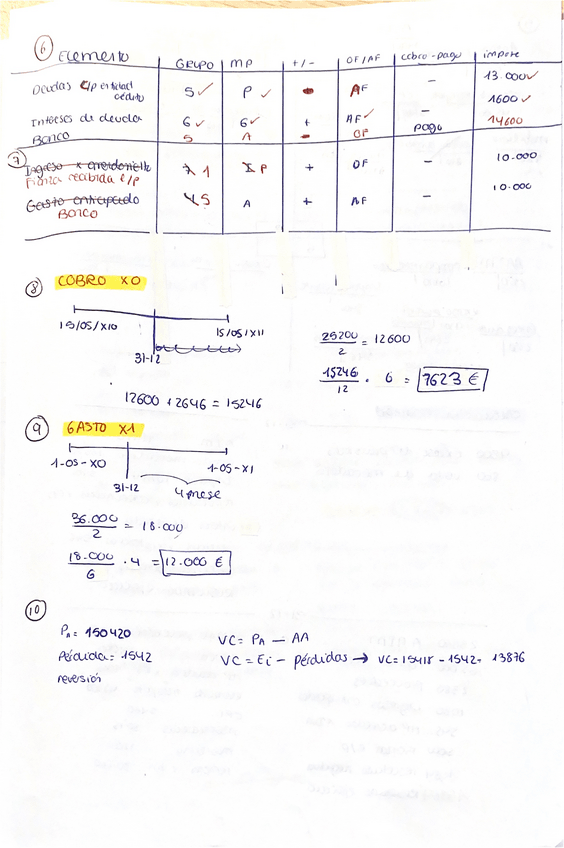 6 Elemento GRUPO MP +/- OF/AF cobro-pago importe
Deudas c/p entidad crédito 5 ✓ P ✓ - AF - 13.000 ✓
Intereses de deuda 6 ✓ 6 ✓ + AF ✓ - 1600 ✓
Banco 5 A - OF pago 14600
7 Ingreso x
Fianza recibida c/p 1 P + OF - 10.000
Gasto anticipado
Banco 5 A + AF - 10.000
8 COBRO X0
15/05/X10 15/05/X11
31-12
25200/2 = 12600
15246/12 · 6 = 7623 €
12600 + 2646 = 15246
9 GASTO X1
1-05-X0 1-05-X1
31-12 4 mese
36.000/2 = 18.000
18.000/6 · 4 = 12.000 €
10
PA = 150420 VC = PA - AA
Pérdida = 1542 VC = Ei - Pérdidas → VC = 15418 - 1542 = 13876
reversión